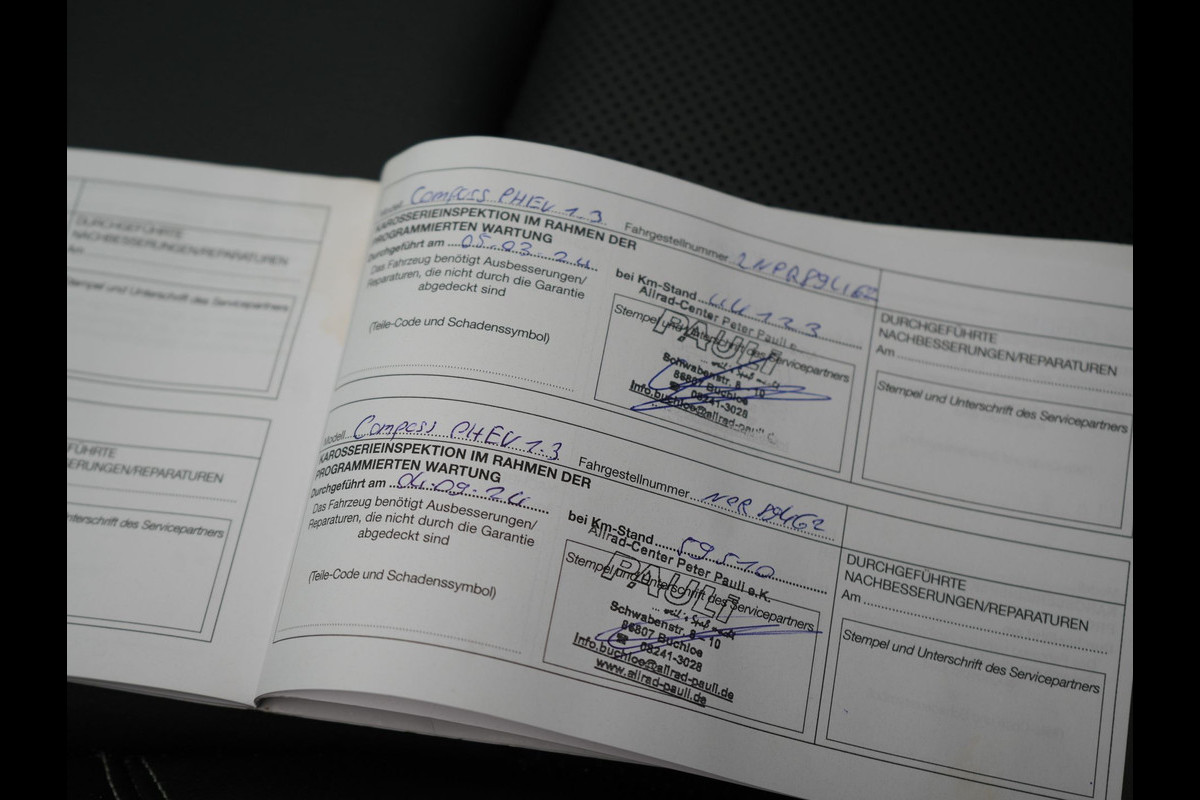 DURCHGEFÜHRTE
NACHBESSERUNGEN/REPARATUREN
Am
Stempel und Unterschrift des Servicepartners
FÜHRTE
SERUNGEN/REPARATUREN
Unterschrift des Servicepartners
Modell Compass PHEV 1.3 Fahrgestellnummer
KAROSSERIEINSPEKTION IM RAHMEN DER
PROGRAMMIERTEN WARTUNG
Durchgeführt am 05.03.24 bei Km-Stand 44133
Das Fahrzeug benötigt Ausbesserungen/
Reparaturen, die nicht durch die Garantie
abgedeckt sind
(Teile-Code und Schadenssymbol)
Allrad-Center Peter Pauli e.
Stempel und Unterschrift des Servicepartners
PAULI
Schwabenstr. 8 - 10
86807 Buchloe
☎ 08241-3028
Info.buchloe@allrad-pauli.
DURCHGEFÜHRTE
NACHBESSERUNGEN/REPARATUREN
Am
Stempel und Unterschrift des Servicepartners
Modell Compass PHEV 1.3 Fahrgestellnummer
KAROSSERIEINSPEKTION IM RAHMEN DER
PROGRAMMIERTEN WARTUNG
Durchgeführt am 04.09.24 bei Km-Stand 59510
Das Fahrzeug benötigt Ausbesserungen/
Reparaturen, die nicht durch die Garantie
abgedeckt sind
(Teile-Code und Schadenssymbol)
Allrad-Center Peter Pauli e.K.
Stempel und Unterschrift des Servicepartners
PAULI
Schwabenstr. 8 - 10
86807 Buchloe
☎ 08241-3028
Info.buchloe@allrad-pauli.de
www.allrad-pauli.de
DURCHGEFÜHRTE
NACHBESSERUNGEN/REPARATUREN
Am
Stempel und Unterschrift des Servicepartners